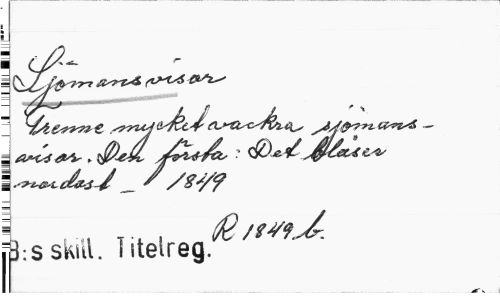 Sjömansvisor
Trenne mycket vackra sjömans-
visor. Den första: Det blåser
nordost _ 1849
R 1849 b.
B:s skill. Titelreg.